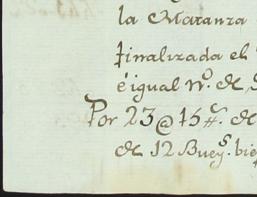 la Matanza
finalizada el
é igual nº. de
Por 23 @ 15 #s. de
de 12 Bueys. bie